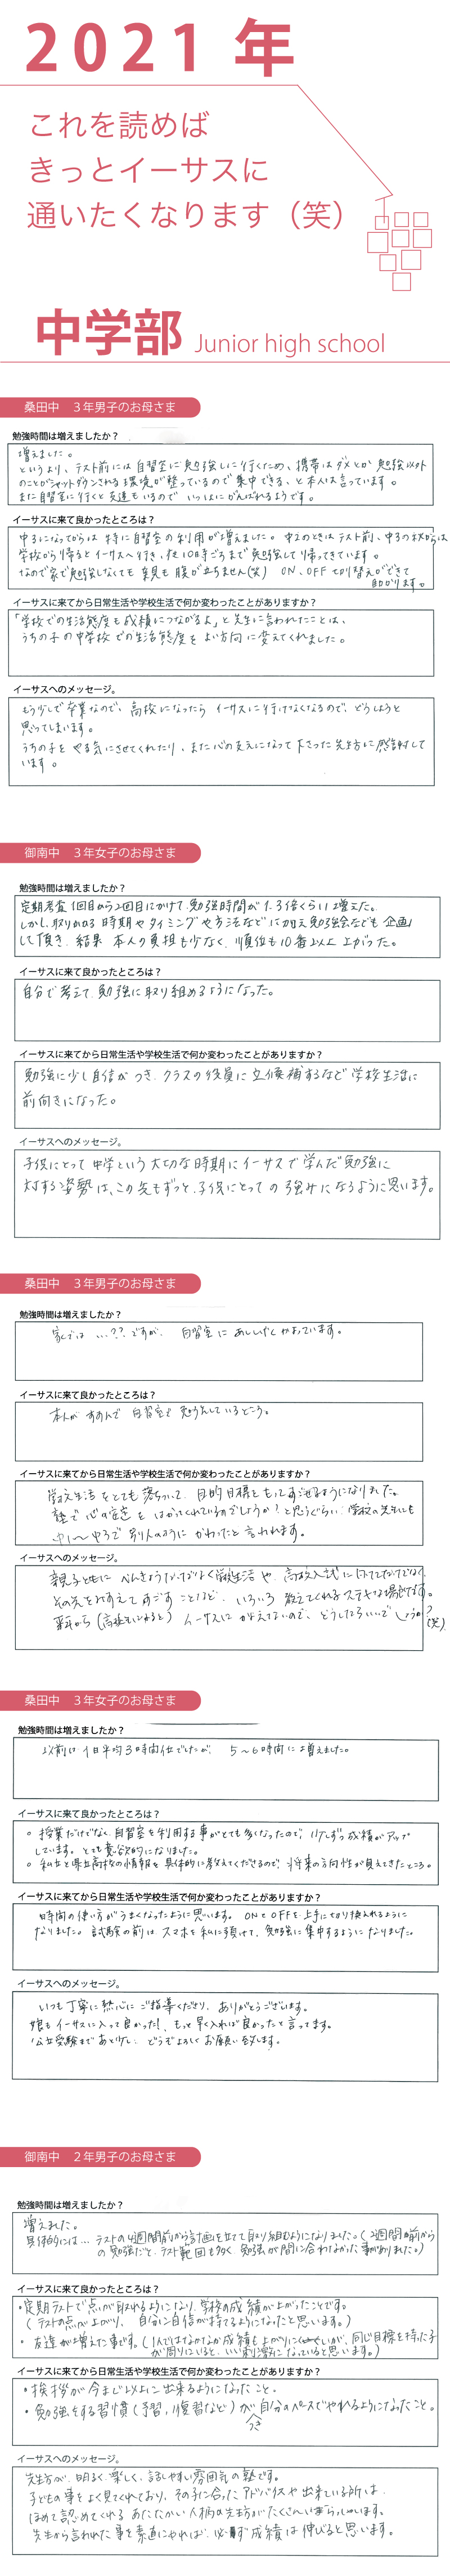 2021年
これを読めば
きっとイーサスに
通いたくなります（笑）
中学部 Junior high school
桑田中　３年男子のお母さま
勉強時間は増えましたか？
増えました。
というより、テスト前には自習室に勉強しに行くため、携帯はダメとか勉強以外
のことがシャットダウンされる環境が整っているので集中できる、と本人は言っています。
また自習室に行くと友達もいるので いっしょにがんばれるようです。
イーサスに来て良かったところは？
中3になってからは特に自習室の利用が増えました。中2のときはテスト前、中3の秋からは
学校から帰るとイーサスへ行き、夜10時ごろまで勉強して帰ってきています。
なので家で勉強しなくても親も腹が立ちません(笑) ON、OFF切り替えができて
助かります。
イーサスに来てから日常生活や学校生活で何か変わったことがありますか？
「学校での生活態度も成績につながるよ」と先生に言われたことは、
うちの子の中学校での生活態度をよい方向に変えてくれました。
イーサスへのメッセージ。
もう少しで卒業なので、高校になったらイーサスに行けなくなるので、どうしようと
思ってしまいます。
うちの子をやる気にさせてくれたり、また心の支えになって下さった先生方に感謝して
います。
御南中　３年女子のお母さま
勉強時間は増えましたか？
定期考査1回目から2回目にかけて勉強時間が1.3倍くらい増えた。
しかし、取りかかる時期やタイミングや方法などに加え勉強会なども企画
して頂き、結果 本人の負担も少なく、順位も10番以上上がった。
イーサスに来て良かったところは？
自分で考えて、勉強に取り組めるようになった。
イーサスに来てから日常生活や学校生活で何か変わったことがありますか？
勉強に少し自信がつき、クラスの役員に立候補するなど学校生活に
前向きになった。
イーサスへのメッセージ。
子供にとって中学という大切な時期にイーサスで学んだ勉強に
対する姿勢は、この先もずっと、子供にとっての強みになるように思います。
桑田中　３年男子のお母さま
勉強時間は増えましたか？
家では …?? ですが、自習室にあししげくかよっています。
イーサスに来て良かったところは？
本人がすすんで自習室で勉強しているところ。
イーサスに来てから日常生活や学校生活で何か変わったことがありますか？
学校生活をとても落ちついて、目的目標をもってすごせるようになりました。
塾で心の安定をはかってくれているのでしょうか？と思うぐらい、学校の先生にも
中1～中3で別人のようにかわったと言われます。
イーサスへのメッセージ。
親子ともにべんきょうだけでなく学校生活や、高校入試にむけてだけでなく、
その先をみすえてすごすことなど、いろいろ教えてくれるステキな場所です。
春から(高校生になると)イーサスにかよえないので、どうしたらいいでしょうか？
(笑)
桑田中　３年女子のお母さま
勉強時間は増えましたか？
以前は1日平均3時間位でしたが、5～6時間に増えました。
イーサスに来て良かったところは？
○ 授業だけでなく、自習室を利用する事がとても多くなったので、少しずつ成績がアップ
しています。とても意欲的になりました。
○ 私立と県立高校の情報を具体的に教えてくださるので、将来の方向性が見えてきたところ。
イーサスに来てから日常生活や学校生活で何か変わったことがありますか？
時間の使い方がうまくなったように思います。ONとOFFを上手に切り換えれるように
なりました。試験の前はスマホを私に預けて、勉強に集中するようになりました。
イーサスへのメッセージ。
いつも丁寧に熱心にご指導くださり、ありがとうございます。
娘もイーサスに入って良かった！、もっと早く入れば良かったと言ってます。
公立受験まであと少し、どうぞよろしくお願い致します。
御南中　２年男子のお母さま
勉強時間は増えましたか？
増えました。
具体的には… テストの4週間前から計画を立てて取り組むようになりました。(2週間前から
の勉強だと、テスト範囲も多く、勉強が間に合わなかった事がありました。)
イーサスに来て良かったところは？
・定期テストで点が取れるようになり、学校の成績が上がったことです。
(テストの点が上がり、自分に自信が持てるようになったと思います。)
・友達が増えた事です。(1人ではなかなか成績も上がりにくいが、同じ目標を持った子
が周りにいると、いい刺激になっていると思います。)
イーサスに来てから日常生活や学校生活で何か変わったことがありますか？
・挨拶が今まで以上に出来るようになったこと。
・勉強をする習慣(予習、復習など)がつき自分のペースでやれるようになったこと。
イーサスへのメッセージ。
先生方が、明るく、楽しく、話しやすい雰囲気の塾です。
子どもの事をよく見てくれており、その子に合ったアドバイスや出来ている所は
ほめて認めてくれるあたたかい人柄の先生方がたくさんいらっしゃいます。
先生から言われた事を素直にやれば、必ず成績は伸びると思います。